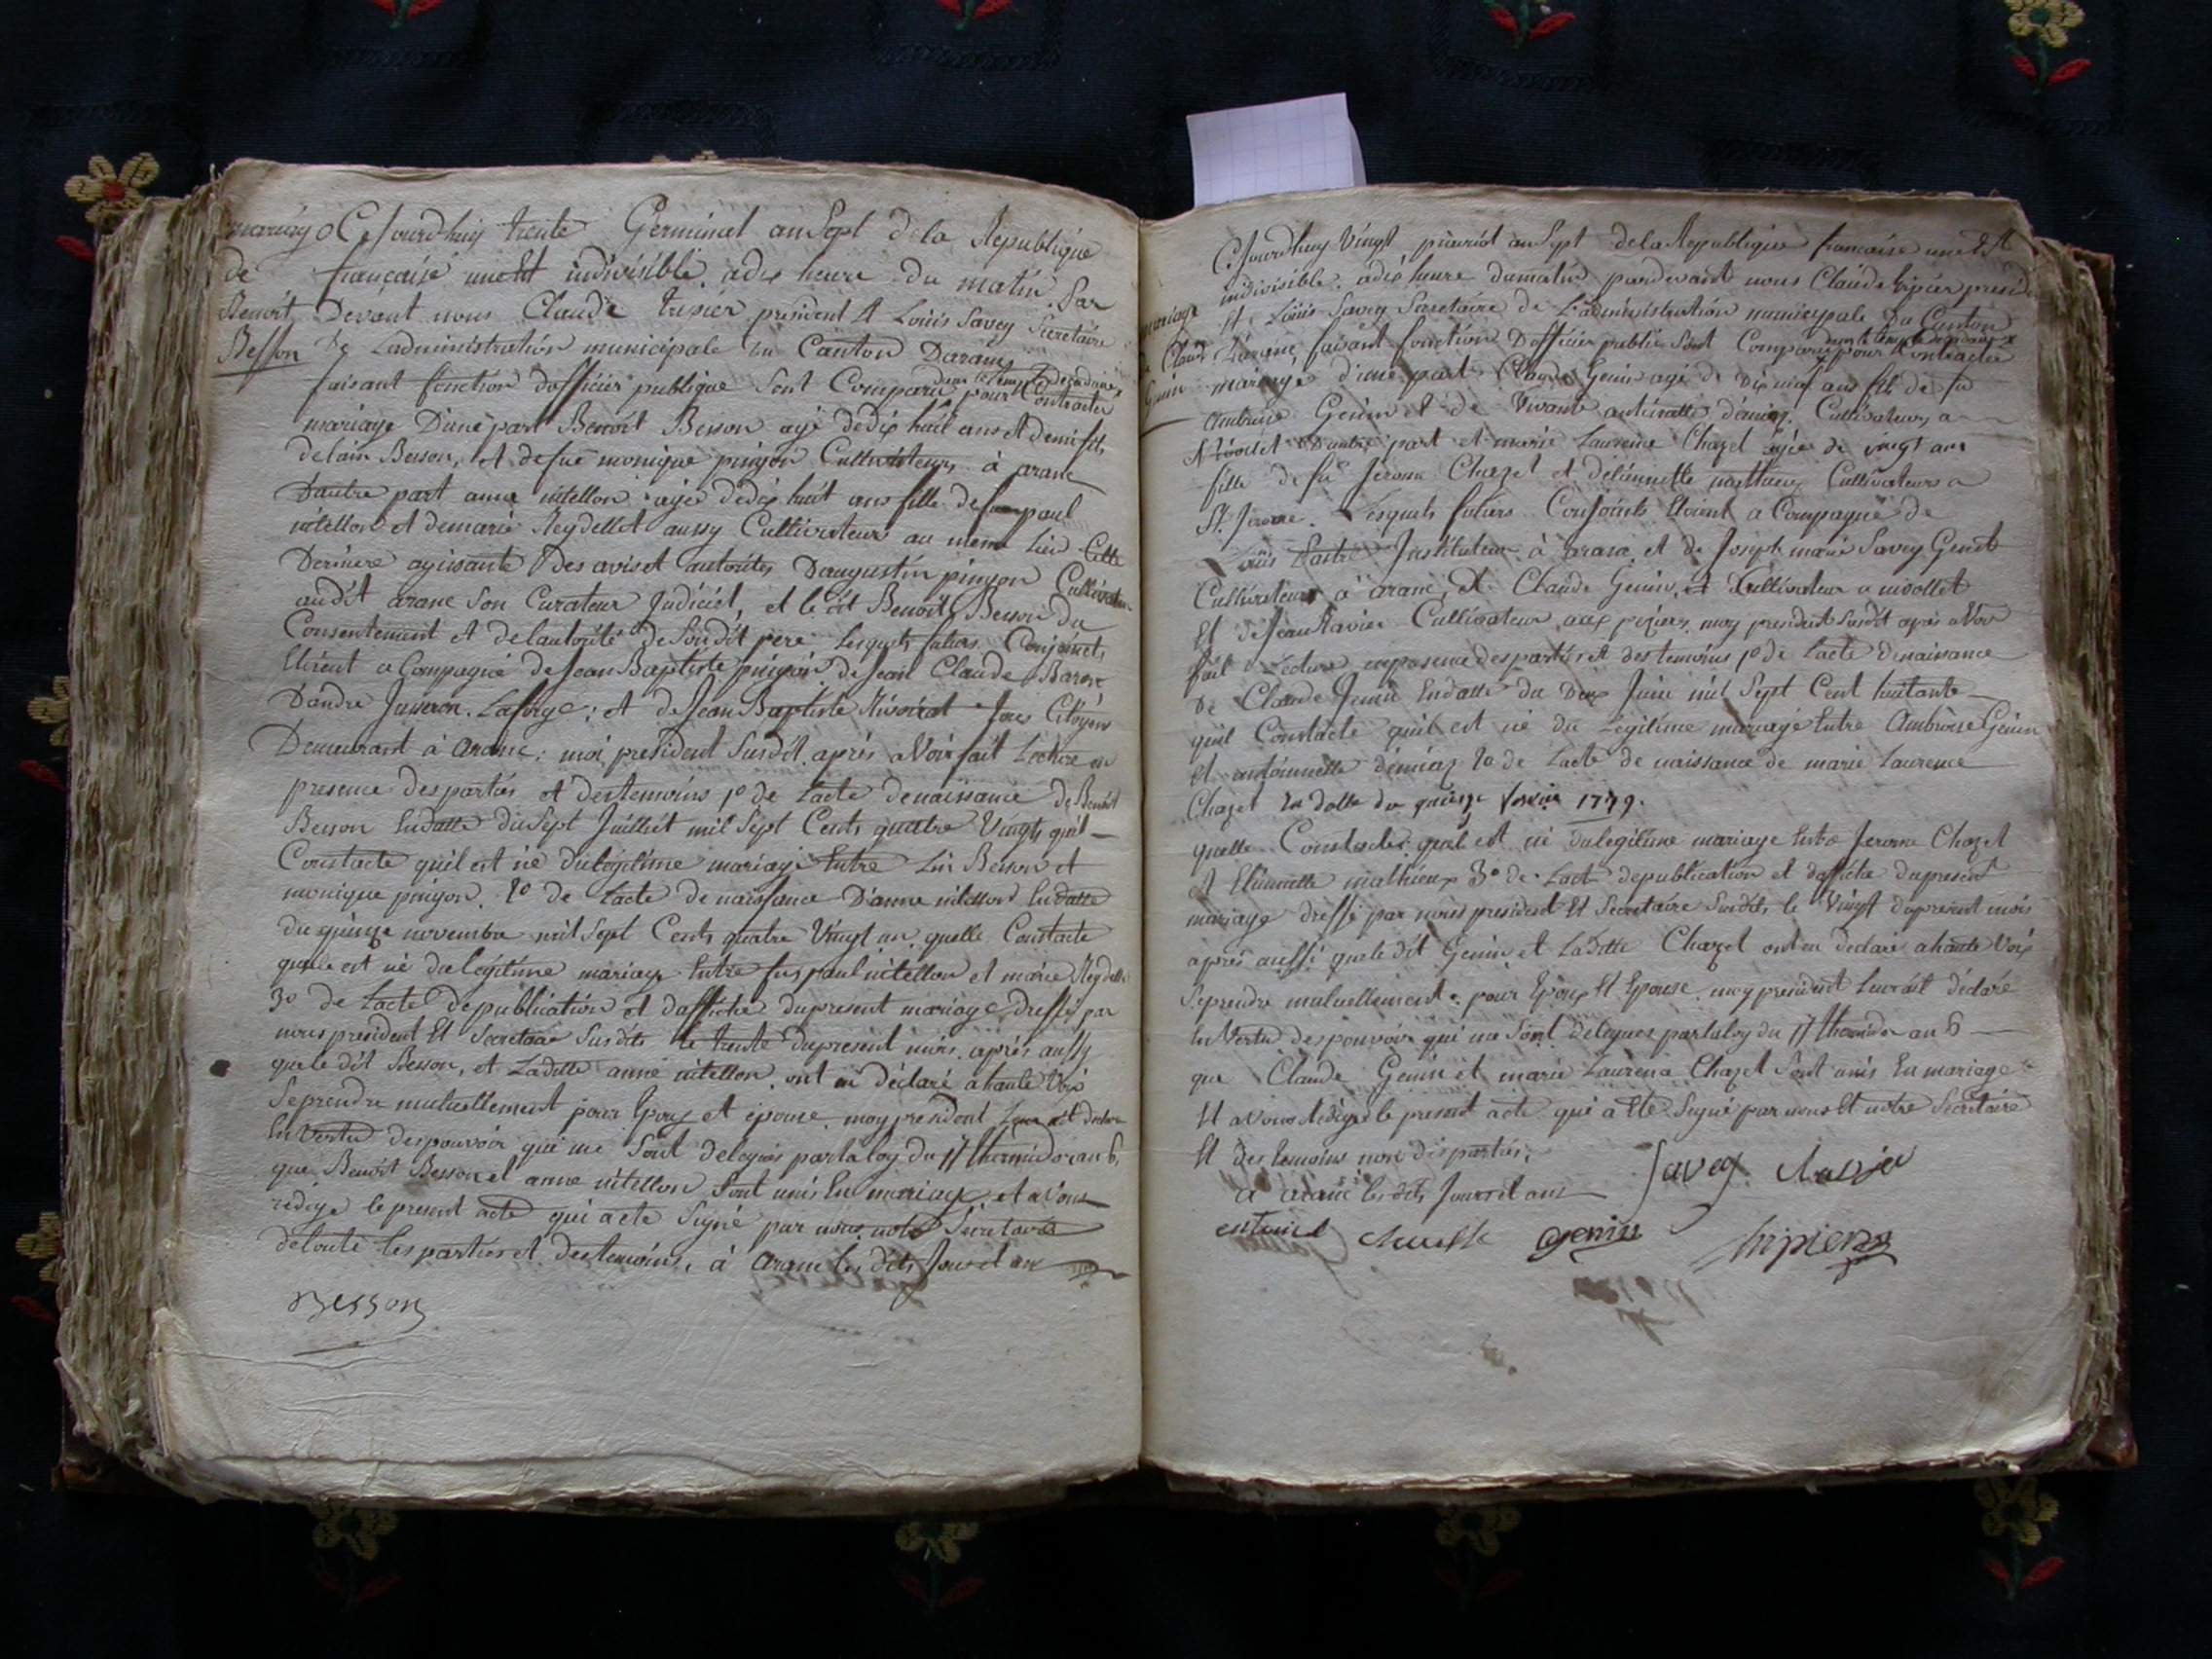 mariage
de
Benoit
Besson
Cejourdhuy trente Germinal an Sept de la Republique
francaise une Et indivisible, a dix heure du matin par
Devant nous Claude tripier president Et Louis Savey Secretaire
de Ladministration municipale du Canton Daranc
faisant fonction dofficier publique Sont Comparu dans le temple decadaire pour Contracter
mariage Dune part Benoit Besson agé de dix huit ans et demi fils
de Besson, et de fue monique pingon Cultivateurs à aranc
Dautre part anne nitellon agée de dix huit ans fille de feu paul
nitellon et de marie Reydellet aussy Cultivateurs au meme Lieu Cette
Derniere agissante des avis et autorités Daugustin pingon Cultivateur
audit aranc Son Curateur Judiciel, et le dit Benoit Besson du
Consentement et de lautorité de Son dit pere Lesquels futurs Conjoints
Etoient a Compagné de Jean Baptiste pingon, de Jean Claude Baron
Dandre Juneron Laforge; et de Jean Baptiste Rivoirat Tous Citoyens
Demeurant à aranc: moi president Susdit après avoir fait Lecture en
presence des parties et des temoins 1o de Lacte de naissance de Benoit
Besson Endatte du Sept Juilliet mil Sept Cents quatre Vingts quil
Constate quil est né du legitime mariage Entre Besson et
monique pingon. 2o de Lacte de naissance D'anne nitellon Endatte
du quinze novembre mil Sept Cents quatre Vingt un quelle Constate
quele est né du legitime mariage Entre feu paul nitellon et marie Reydellet
3o de Lacte de publication et daffiche du present mariage dressé par
nous president Et Secretaire Susdits le trente du present mois, après aussy
que le dit Besson, et Laditte anne nitellon ont en declaré a haute Voix
Se prendre mutuellement pour Epoux et epouse, moy president
En Vertu des pouvoir qui me Sont delegués par la loy du 17 thermidor an 6
que Benoit Besson et anne nitellon Sont unis En mariage et avons
redigé le present acte qui a eté Signé par nous notre Secretaire
de toute les parties et des temoins, à aranc les dits Jour et an
Besson
mariage
Claude
Genin
Cejourdhuy Vingt prairial an Sept de la Republique francaise une Et
indivisible, a dix heure du matin pardevant nous Claude tripier president
Et Louis Savey Secretaire de Ladministration municipale du Canton
Daranc, faisant fonction Dofficier public Sont Comparu dans le temple decadaire pour Contracter
mariage d'une part Claude Genin agé de dix neuf ans fils de fu
Ambroise Genin Et de Vivante antoinette Cultivateurs a
Dautre part et marie Laurence Chazel agée de vingt ans
fille de fu Jerome Chazel et d'Etiennette mathieux Cultivateurs a
St. Jerome. Lesquels futurs Conjoints Etoient a Compagné de
Louis Instituteur à aranc, et de Joseph marie Savey
Cultivateurs à aranc, Et Claude Genin, et Cultivateur a mollet
Et de Jean Ravier Cultivateur aux pezieres, moy president Susdit après avoir
fait Lecture en presence des parties et des temoins 1o de Lacte de naissance
de Claude Jenin Endatte du Deux Juin mil Sept Cent huitante
quil Constate quil est né du Legitime mariage Entre Ambroise Genin
Et antoinette 2o de Lacte de naissance de marie Laurence
Chazel En datte du quinze 1779.
quelle Constate, quel est né du legitime mariage Entre Jerome Chazel
et Etiennette mathieux 3o de Lacte de publication et daffiche du present
mariage dressé par nous president Et Secretaire Susdits le Vingt du present mois
après aussi que le dit Genin et Laditte Chazel ont en declaré a haute Voix
Se prendre mutuellement pour Epoux Et Epouse, moy president Leur ait déclaré
En Vertu des pouvoir qui me Sont delegués par la loy du 17 thermidor an 6
que Claude Genin et marie Laurence Chazel Sont unis En mariage
Et avons redigé le present acte qui a Eté Signé par nous Et notre Secretaire
Et des temoins non des parties.
a aranc les dits Jours et ans
Savey Ravier
genin tripier